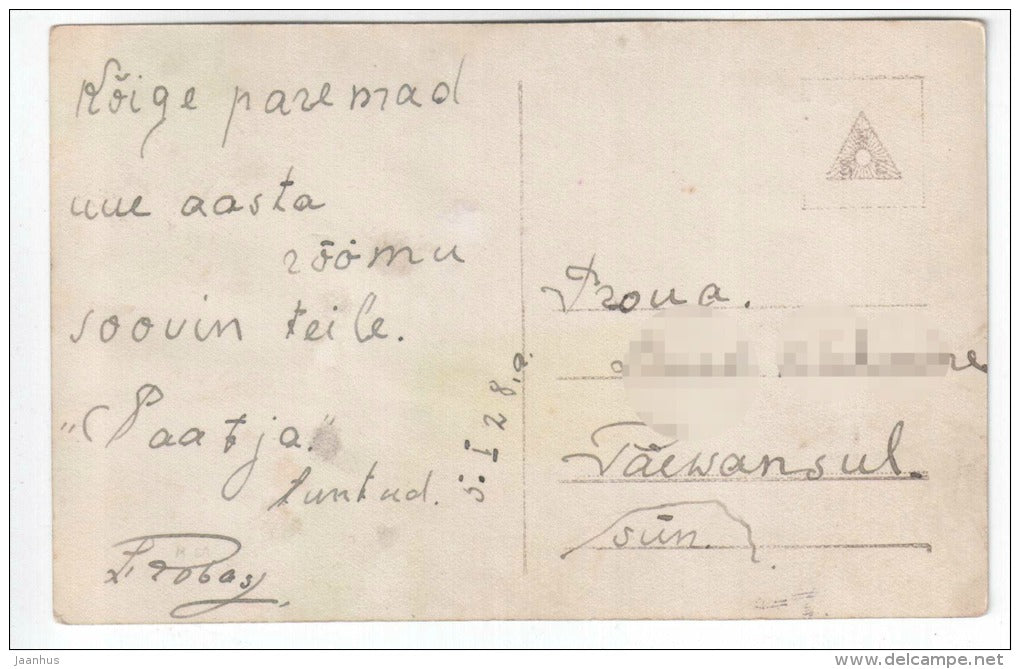 Kõige paremad
uue aasta
rõõmu
soovin teile.
"Paatja."
tuntud.
5. I 28.a.
Proua.
Täewansul.
siin.
jaanhus
www.delcampe.net